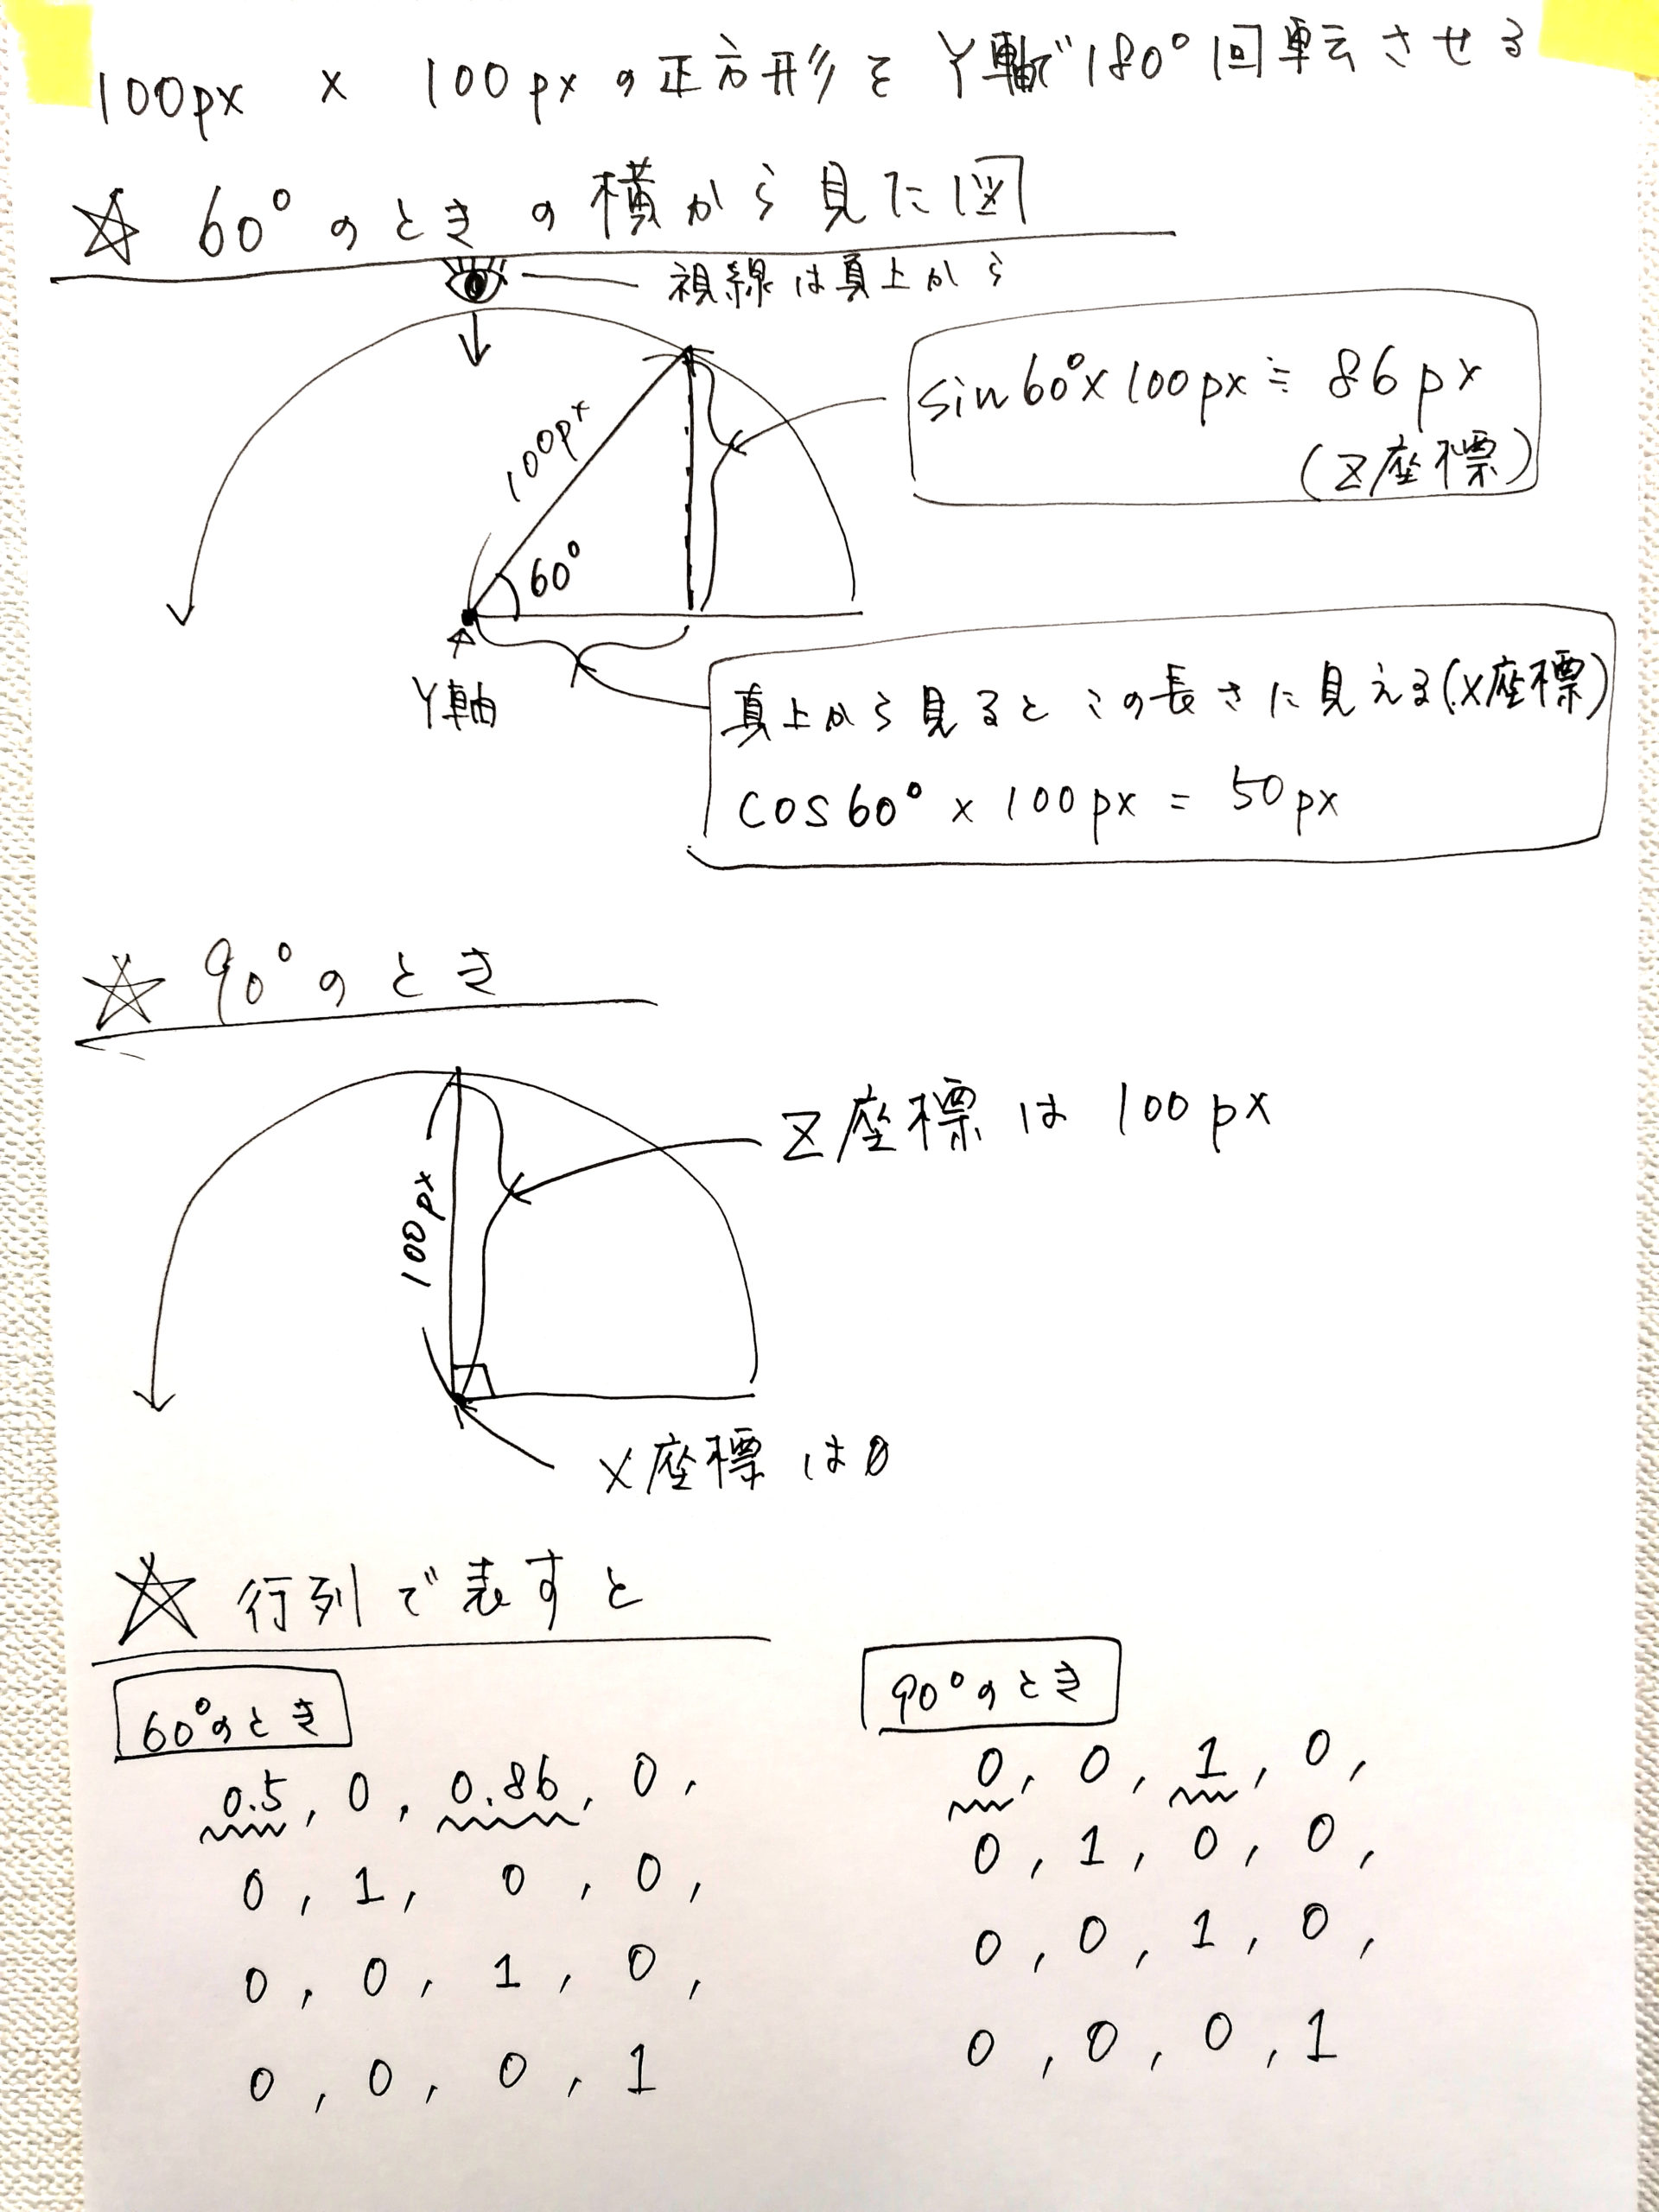 100px × 100pxの正方形をY軸で180°回転させる
☆ 60°のときの横から見た図
視線は真上から
sin60°×100px≒86px
(Z座標)
100px
60°
Y軸
真上から見るとこの長さに見える(X座標)
cos60°×100px=50px
☆ 90°のとき
Z座標は100px
100px
X座標は0
☆ 行列で表すと
60°のとき
0.5, 0, 0.86, 0,
0, 1, 0, 0,
0, 0, 1, 0,
0, 0, 0, 1
90°のとき
0, 0, 1, 0,
0, 1, 0, 0,
0, 0, 1, 0,
0, 0, 0, 1